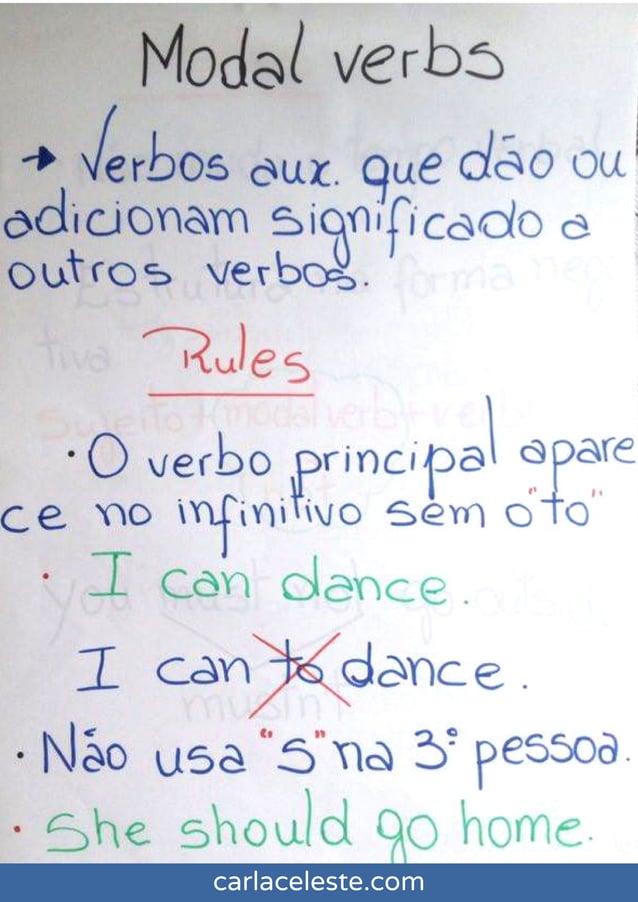 Modal verbs
→ Verbos aux. que dão ou
adicionam significado a
outros verbos.
Rules
· O verbo principal apare
ce no infinitivo sem o "to"
· I can dance.
I can to dance.
· Não usa "s" na 3ª pessoa.
· She should go home.
carlaceleste.com